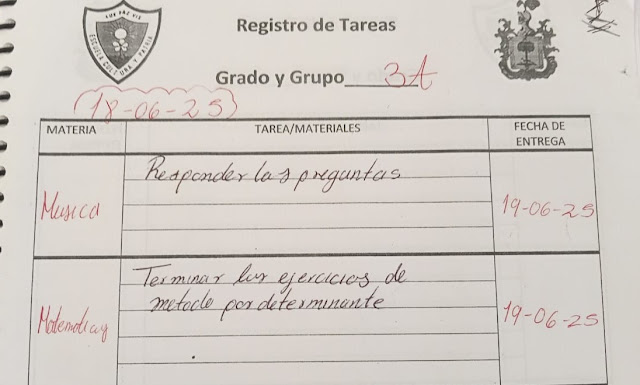 LUX PAX VIS
Registro de Tareas
Grado y Grupo 3A
(18-06-25)
MATERIA TAREA/MATERIALES FECHA DE ENTREGA
Responder las preguntas
Musica 19-06-25
Terminar los ejercicios de
metodo por determinante
Matematicas 19-06-25